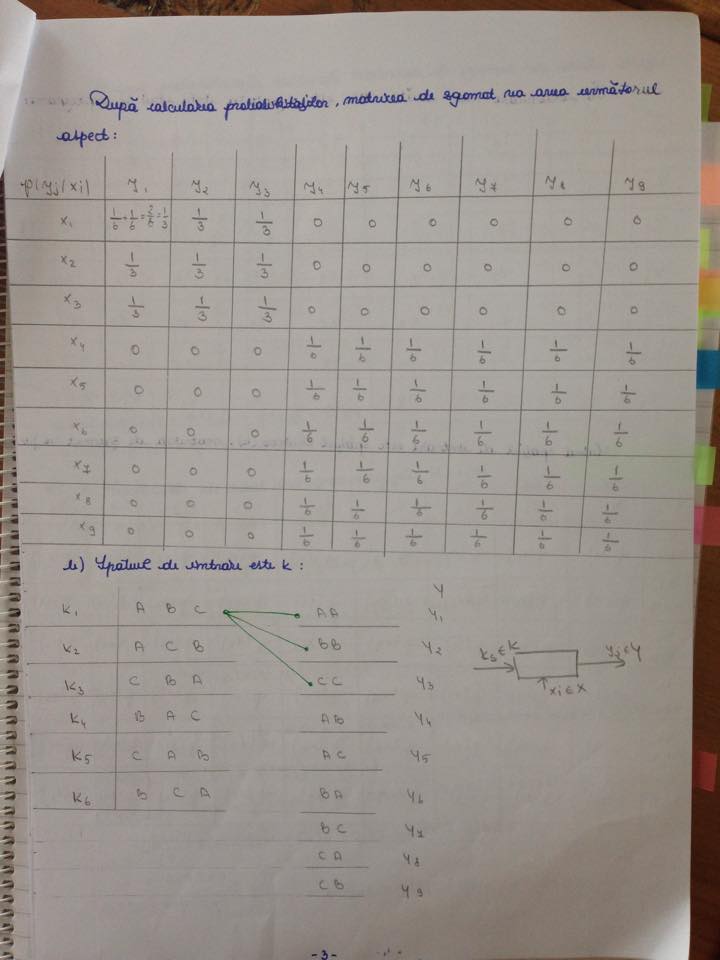 După calcularea probabilităților, matricea de zgomot va avea următorul
aspect:
p(yj/xi) y1 y2 y3 y4 y5 y6 y7 y8 y9
x1 1/6+1/6=2/6=1/3 1/3 1/3 0 0 0 0 0 0
x2 1/3 1/3 1/3 0 0 0 0 0 0
x3 1/3 1/3 1/3 0 0 0 0 0 0
x4 0 0 0 1/6 1/6 1/6 1/6 1/6 1/6
x5 0 0 0 1/6 1/6 1/6 1/6 1/6 1/6
x6 0 0 0 1/6 1/6 1/6 1/6 1/6 1/6
x7 0 0 0 1/6 1/6 1/6 1/6 1/6 1/6
x8 0 0 0 1/6 1/6 1/6 1/6 1/6 1/6
x9 0 0 0 1/6 1/6 1/6 1/6 1/6 1/6
b) Spațiul de intrare este K:
Y
K1 A B C AA Y1
K2 A C B BB Y2
K3 C B A CC Y3
K4 B A C AB Y4
K5 C A B AC Y5
K6 B C A BA Y6
BC Y7
CA Y8
CB Y9
ks∈K yj∈Y
xi∈X
-3-